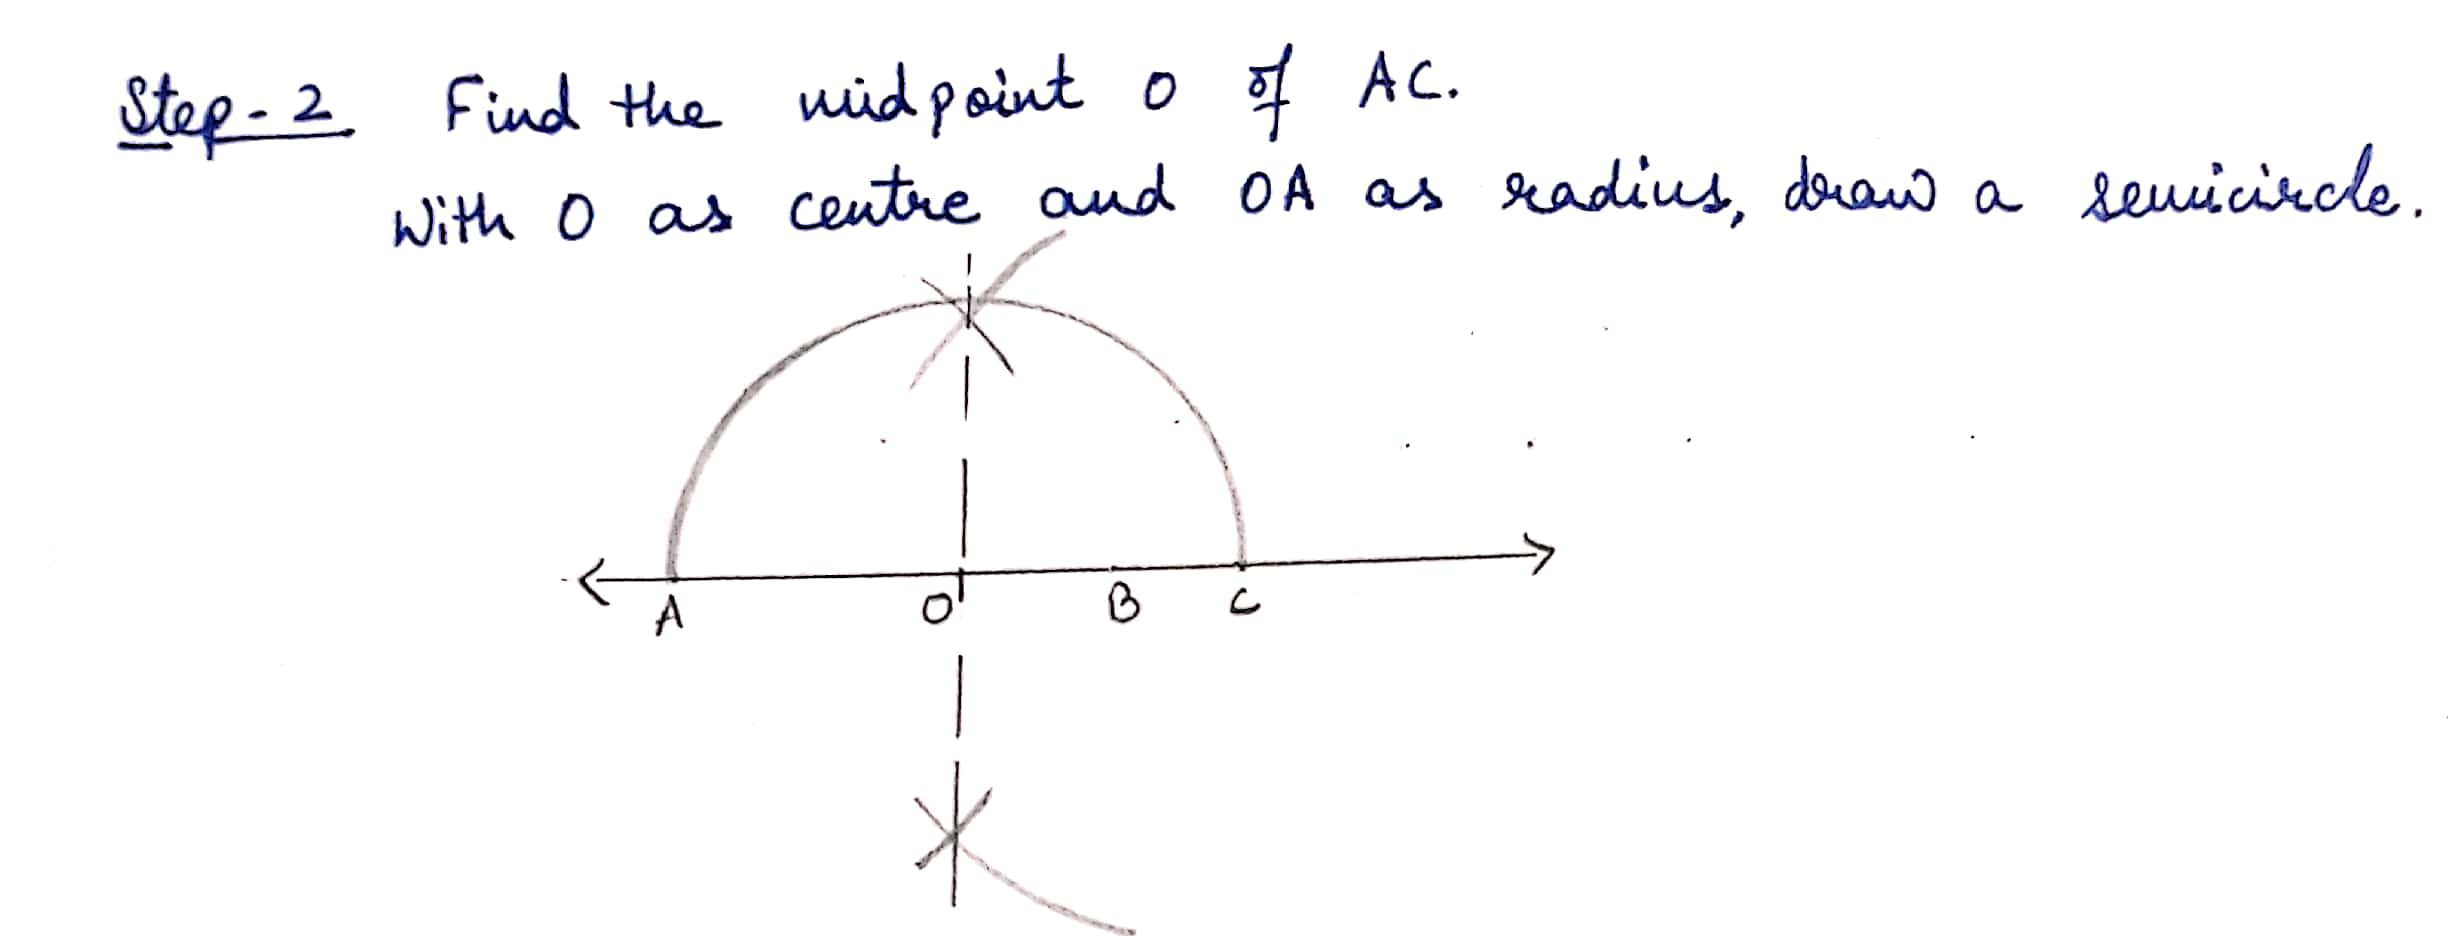 Step-2 Find the midpoint O of AC.
With O as centre and OA as radius, draw a semicircle.
A O B C